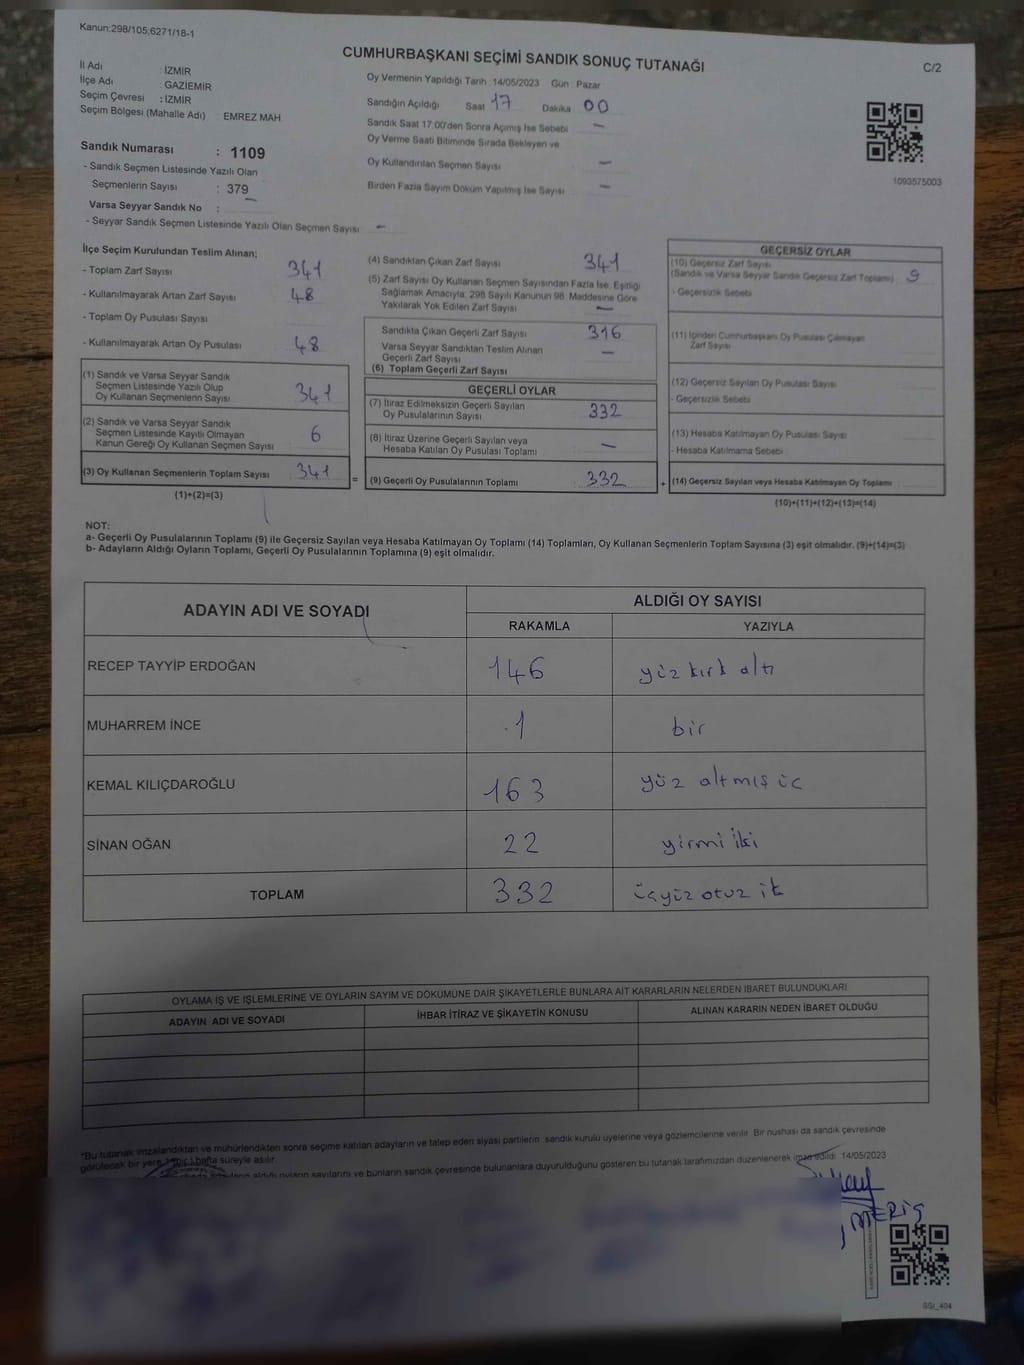 Kanun:298/105;6271/18-1
CUMHURBAŞKANI SEÇİMİ SANDIK SONUÇ TUTANAĞI
C/2
İl Adı : İZMİR
İlçe Adı : GAZİEMİR
Seçim Çevresi : İZMİR
Seçim Bölgesi (Mahalle Adı) : EMREZ MAH.
Sandık Numarası : 1109
- Sandık Seçmen Listesinde Yazılı Olan
Seçmenlerin Sayısı : 379
Varsa Seyyar Sandık No : -
- Seyyar Sandık Seçmen Listesinde Yazılı Olan Seçmen Sayısı -
Oy Vermenin Yapıldığı Tarih :14/05/2023 Gün : Pazar
Sandığın Açıldığı Saat 17 Dakika 00
Sandık Saat 17:00'den Sonra Açımış İse Sebebi -
Oy Verme Saati Bitiminde Sırada Bekleyen ve
Oy Kullandırılan Seçmen Sayısı -
Birden Fazla Sayım Döküm Yapılmış İse Sayısı -
1093575003
İlçe Seçim Kurulundan Teslim Alınan;
- Toplam Zarf Sayısı 341
- Kullanılmayarak Artan Zarf Sayısı 48
- Toplam Oy Pusulası Sayısı
- Kullanılmayarak Artan Oy Pusulası 48
(1) Sandık ve Varsa Seyyar Sandık
Seçmen Listesinde Yazılı Olup
Oy Kullanan Seçmenlerin Sayısı 341
(2) Sandık ve Varsa Seyyar Sandık
Seçmen Listesinde Kayıtlı Olmayan
Kanun Gereği Oy Kullanan Seçmen Sayısı 6
(3) Oy Kullanan Seçmenlerin Toplam Sayısı 341
(1)+(2)=(3)
=
(4) Sandıktan Çıkan Zarf Sayısı 341
(5) Zarf Sayısı Oy Kullanan Seçmen Sayısından Fazla İse, Eşitliği
Sağlamak Amacıyla, 298 Sayılı Kanunun 98. Maddesine Göre
Yakılarak Yok Edilen Zarf Sayısı -
Sandıkta Çıkan Geçerli Zarf Sayısı 316
Varsa Seyyar Sandıktan Teslim Alınan
Geçerli Zarf Sayısı -
(6) Toplam Geçerli Zarf Sayısı
GEÇERLİ OYLAR
(7) İtiraz Edilmeksizin Geçerli Sayılan
Oy Pusulalarının Sayısı 332
(8) İtiraz Üzerine Geçerli Sayılan veya
Hesaba Katılan Oy Pusulası Toplamı -
(9) Geçerli Oy Pusulalarının Toplamı 332
+
GEÇERSİZ OYLAR
(10) Geçersiz Zarf Sayısı
(Sandık ve Varsa Seyyar Sandık Geçersiz Zarf Toplamı) 9
- Geçersizlik Sebebi
(11) İçinden Cumhurbaşkanı Oy Pusulası Çıkmayan
Zarf Sayısı
(12) Geçersiz Sayılan Oy Pusulası Sayısı
- Geçersizlik Sebebi
(13) Hesaba Katılmayan Oy Pusulası Sayısı
- Hesaba Katılmama Sebebi
(14) Geçersiz Sayılan veya Hesaba Katılmayan Oy Toplamı
(10)+(11)+(12)+(13)=(14)
NOT:
a- Geçerli Oy Pusulalarının Toplamı (9) ile Geçersiz Sayılan veya Hesaba Katılmayan Oy Toplamı (14) Toplamları, Oy Kullanan Seçmenlerin Toplam Sayısına (3) eşit olmalıdır. (9)+(14)=(3)
b- Adayların Aldığı Oyların Toplamı, Geçerli Oy Pusulalarının Toplamına (9) eşit olmalıdır.
ADAYIN ADI VE SOYADI
ALDIĞI OY SAYISI
RAKAMLA YAZIYLA
RECEP TAYYİP ERDOĞAN 146 yüz kırk altı
MUHARREM İNCE 1 bir
KEMAL KILIÇDAROĞLU 163 yüz altmış üç
SİNAN OĞAN 22 yirmi iki
TOPLAM 332 üçyüz otuz ik
OYLAMA İŞ VE İŞLEMLERİNE VE OYLARIN SAYIM VE DÖKÜMÜNE DAİR ŞİKAYETLERLE BUNLARA AİT KARARLARIN NELERDEN İBARET BULUNDUKLARI
ADAYIN ADI VE SOYADI İHBAR İTİRAZ VE ŞİKAYETİN KONUSU ALINAN KARARIN NEDEN İBARET OLDUĞU
*Bu tutanak imzalandıktan ve mühürlendikten sonra seçime katılan adayların ve talep eden siyasi partilerin sandık kurulu üyelerine veya gözlemcilerine verilir. Bir nushası da sandık çevresinde
görülecek bir yere 1 (bir) hafta süreyle asılır.
aldığı oyların sayılarını ve bunların sandık çevresinde bulunanlara duyurulduğunu gösteren bu tutanak tarafımızdan düzenlenerek imza edildi. 14/05/2023
MERİŞ
SGI_404